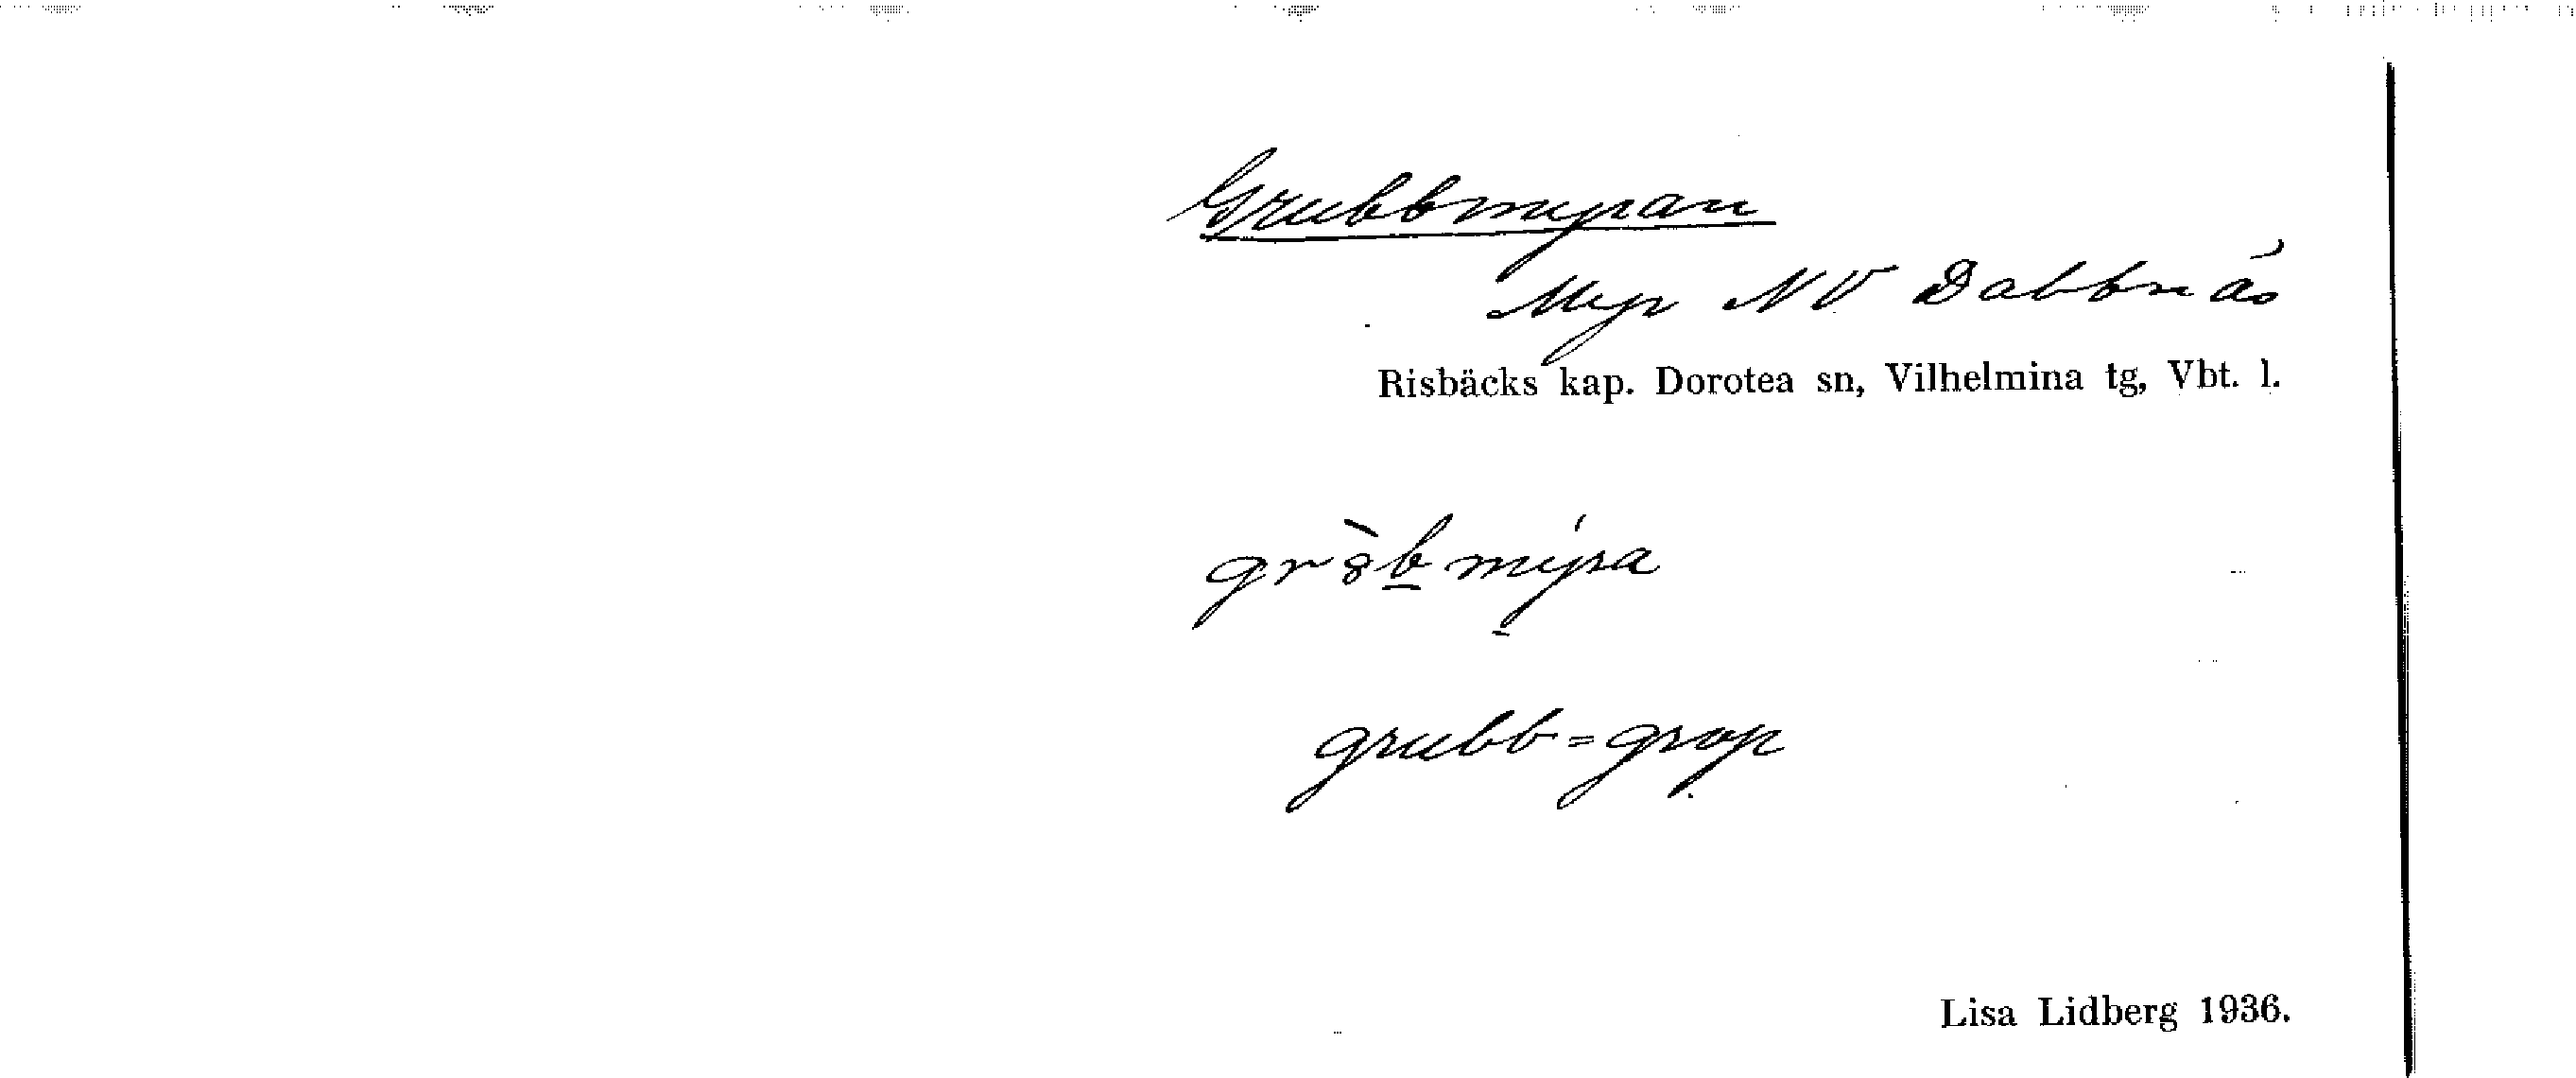 Grubbmyran
Myr NV Dabbnäs
Risbäcks kap. Dorotea sn, Vilhelmina tg, Vbt. l.
gr8̀b̲mýra
grubb = grop
Lisa Lidberg 1936.